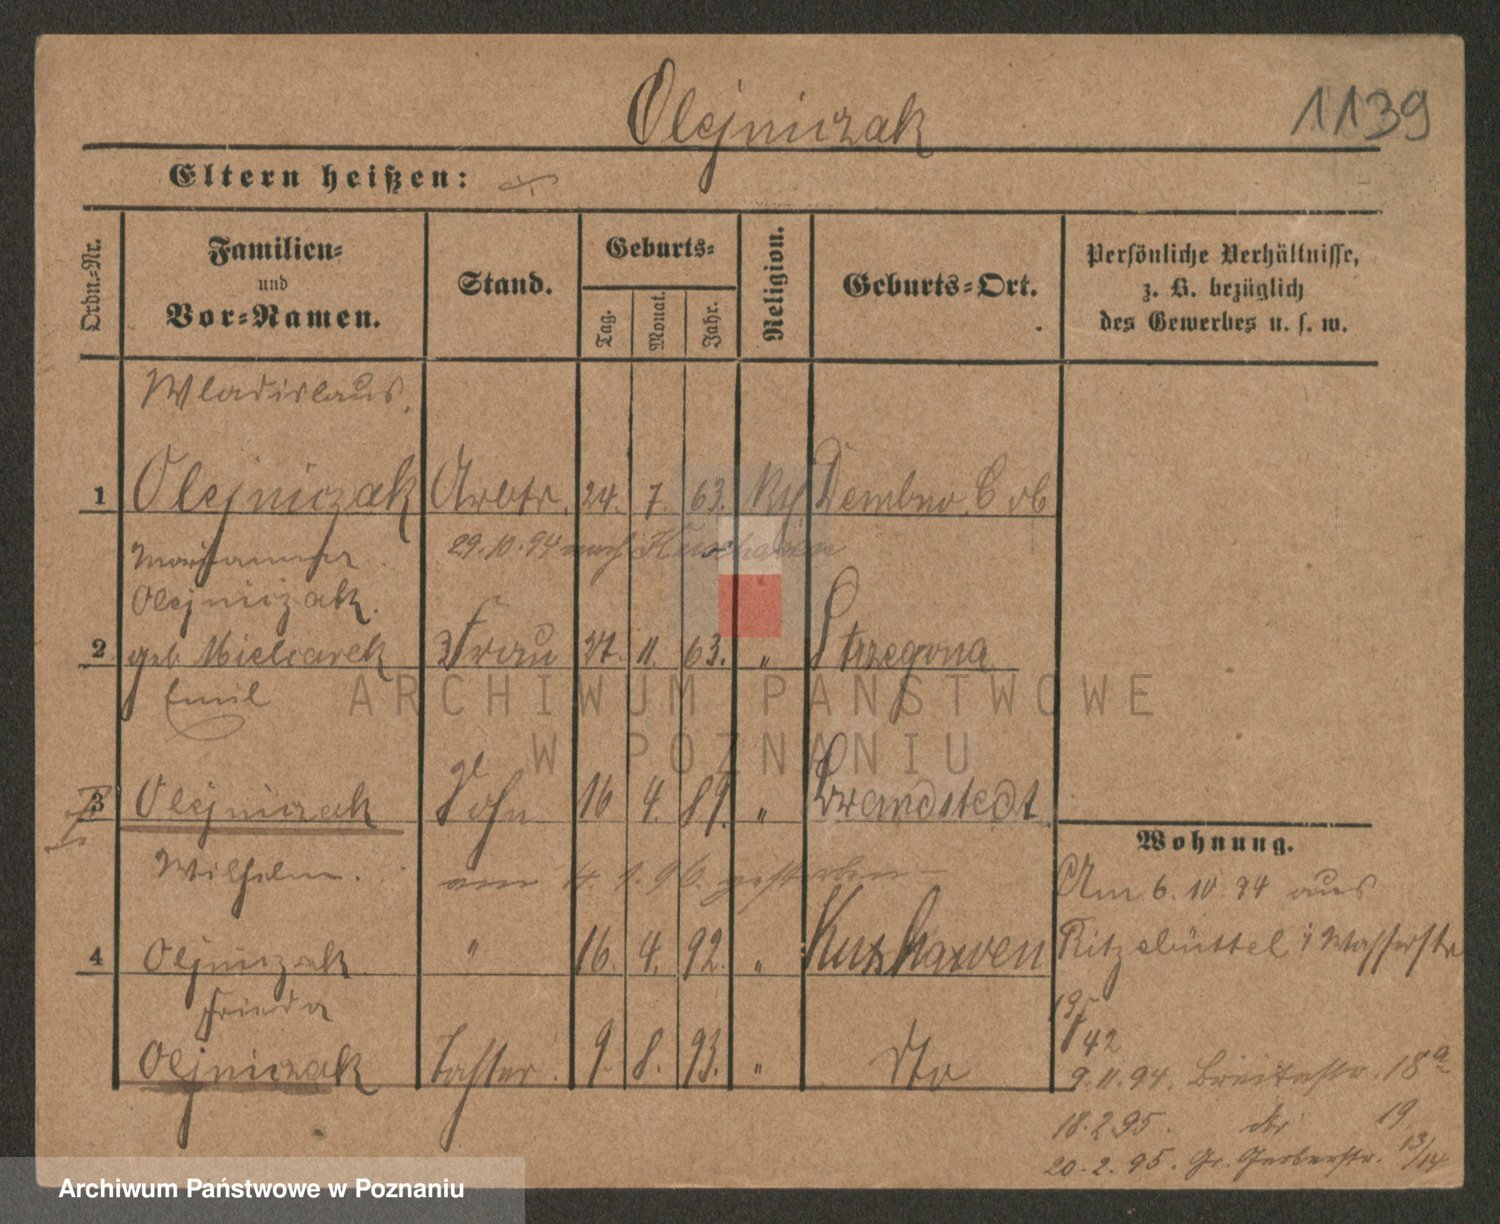 Olejniczak
1139
Eltern heißen:
Ordn.-Nr.
Familien-
und
Vor-Namen.
Stand.
Geburts-
Tag.
Monat.
Jahr.
Religion.
Geburts-Ort.
Persönliche Verhältnisse,
z. B. bezüglich
des Gewerbes u. s. w.
Wladislaus
1 Olejniczak Arbtr. 24. 7. 63. Dembno
29.10.94 nach Kuxhaven
Marianna
Olejniczak
2 geb. Mielcarek Frau 11. 63. " Strzegowa
Emil
3 Olejniczak Sohn 16 4. 89. " Brandstedt
Wilhelm.
am 4. 1. 96. gestorben
4 Olejniczak " 16. 4. 92. " Kuxhaven
Frieda
Olejniczak Tochter. 9. 8. 93. " dto
Wohnung.
Am 6. 10. 94 aus
Ritzebüttel Wasserstr
42
9. 11. 94. Breitestr. 18a
18. 2. 95. dto 19.
20. 2. 95. Gr. Gerberstr. 13/14
ARCHIWUM PAŃSTWOWE
W POZNANIU
Archiwum Państwowe w Poznaniu